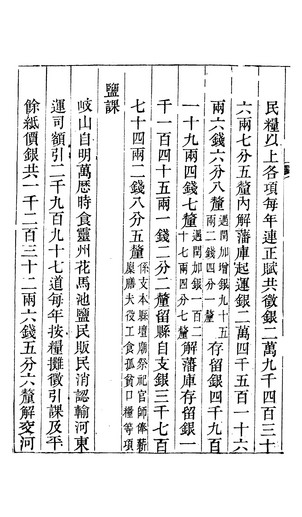 民糧以上各項每年連正賦共徵銀二萬九千四百三十
六兩七分五釐內解藩庫起運銀二萬四千五百一十六
兩六錢六分八釐遇閏加增銀九十五兩二錢四分一釐存留銀四千九百
一十九兩四錢七釐遇閏加銀一百二十七兩四分七釐解藩庫存留銀一
千一百四十五兩一錢二分二釐留縣自支銀三千七百
七十四兩二錢八分五釐係支本縣壇廟祭祀官師俸薪廩膳夫役工食孤貧口糧等項
鹽課
岐山自明萬歷時食靈州花馬池鹽民販民消認輸河東
運司額引二千九百九十七道每年按糧攤徵引課及平
餘紙價銀共一千二百三十二兩六錢五分六釐解交河